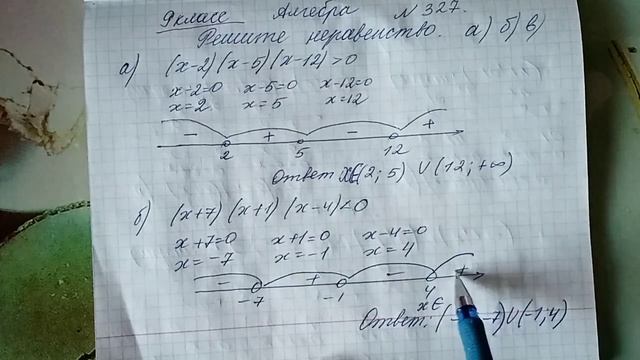 9 класс Алгебра N 327.
Решите неравенство. а) б) в)
а) (x-2)(x-5)(x-12)>0
x-2=0 x-5=0 x-12=0
x=2 x=5 x=12
- + - +
2 5 12
Ответ x∈(2; 5) ∪ (12; +∞)
б) (x+7)(x+1)(x-4)<0
x+7=0 x+1=0 x-4=0
x=-7 x=-1 x=4
- + - +
-7 -1 4
x∈
Ответ: (- -7) ∪ (-1; 4)